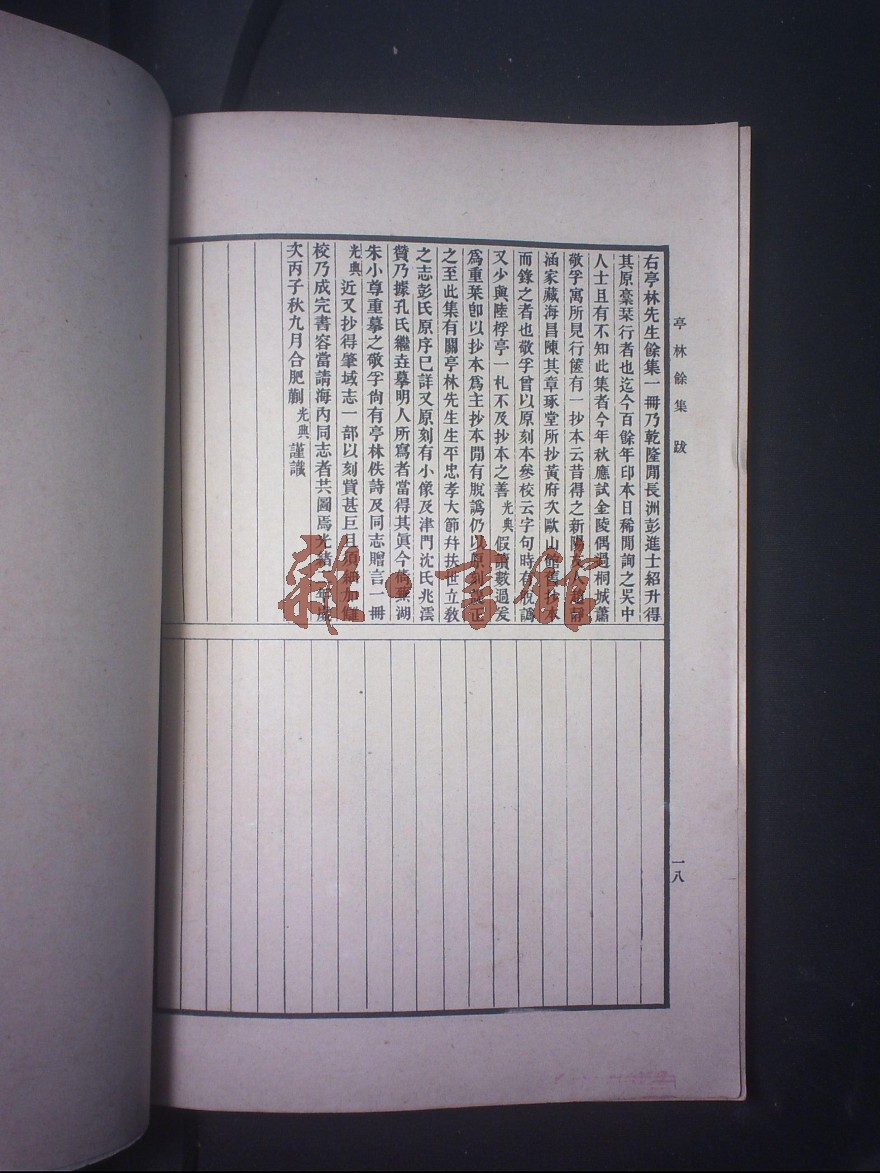 亭林餘集 跋
一八
右亭林先生餘集一冊乃乾隆閒長洲彭進士紹升得
其原槀栞行者也迄今百餘年印本日稀閒詢之吳中
人士且有不知此集者今年秋應試金陵偶過桐城蕭
敬孚寓所見行篋有一抄本云昔得之新陽友人趙靜
涵家藏海昌陳其章琢堂所抄黃府次歐山館舊抄本
而錄之者也敬孚曾以原刻本參校云字句時有脫譌
又少與陸桴亭一札不及抄本之善光典假讀數過爰
爲重栞卽以抄本爲主抄本閒有脫譌仍以原刻訂正
之至此集有關亭林先生生平忠孝大節幷扶世立敎
之志彭氏原序已詳又原刻有小像及津門沈氏兆澐
贊乃據孔氏繼垚摹明人所寫者當得其眞今倩蕪湖
朱小尊重摹之敬孚尙有亭林佚詩及同志贈言一冊
光典近又抄得肇域志一部以刻貲甚巨且須細加讎
校乃成完書容當請海內同志者共圖焉光緒二年歲
次丙子秋九月合肥蒯光典謹識
雜·書館